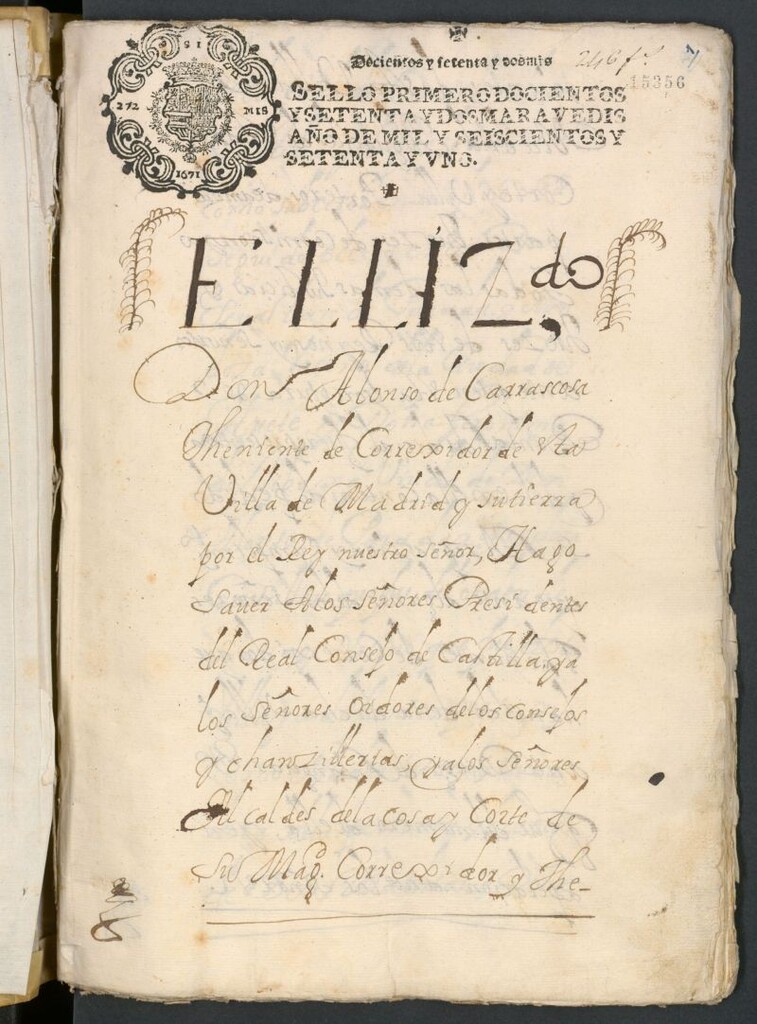 Docientos y setenta y dos mrs
246 fs
15356
SELLO PRIMERO DOCIENTOS
Y SETENTA Y DOS MARAVEDIS
AÑO DE MIL Y SEISCIENTOS Y
SETENTA Y VNO.
272 MIS
1671
El Liz.do
Don Alonso de Carrascosa
Theniente de Correxidor de sta
Villa de Madrid y su tierra
por el Rey nuestro señor, Hago
Saver Alos señores Presidentes
del Real Consejo de Castilla, ya
los señores oidores delos consejos
y chanzillerias, yalos señores
Alcaldes dela cosa y Corte de
Su Magd. Correxidor y The-